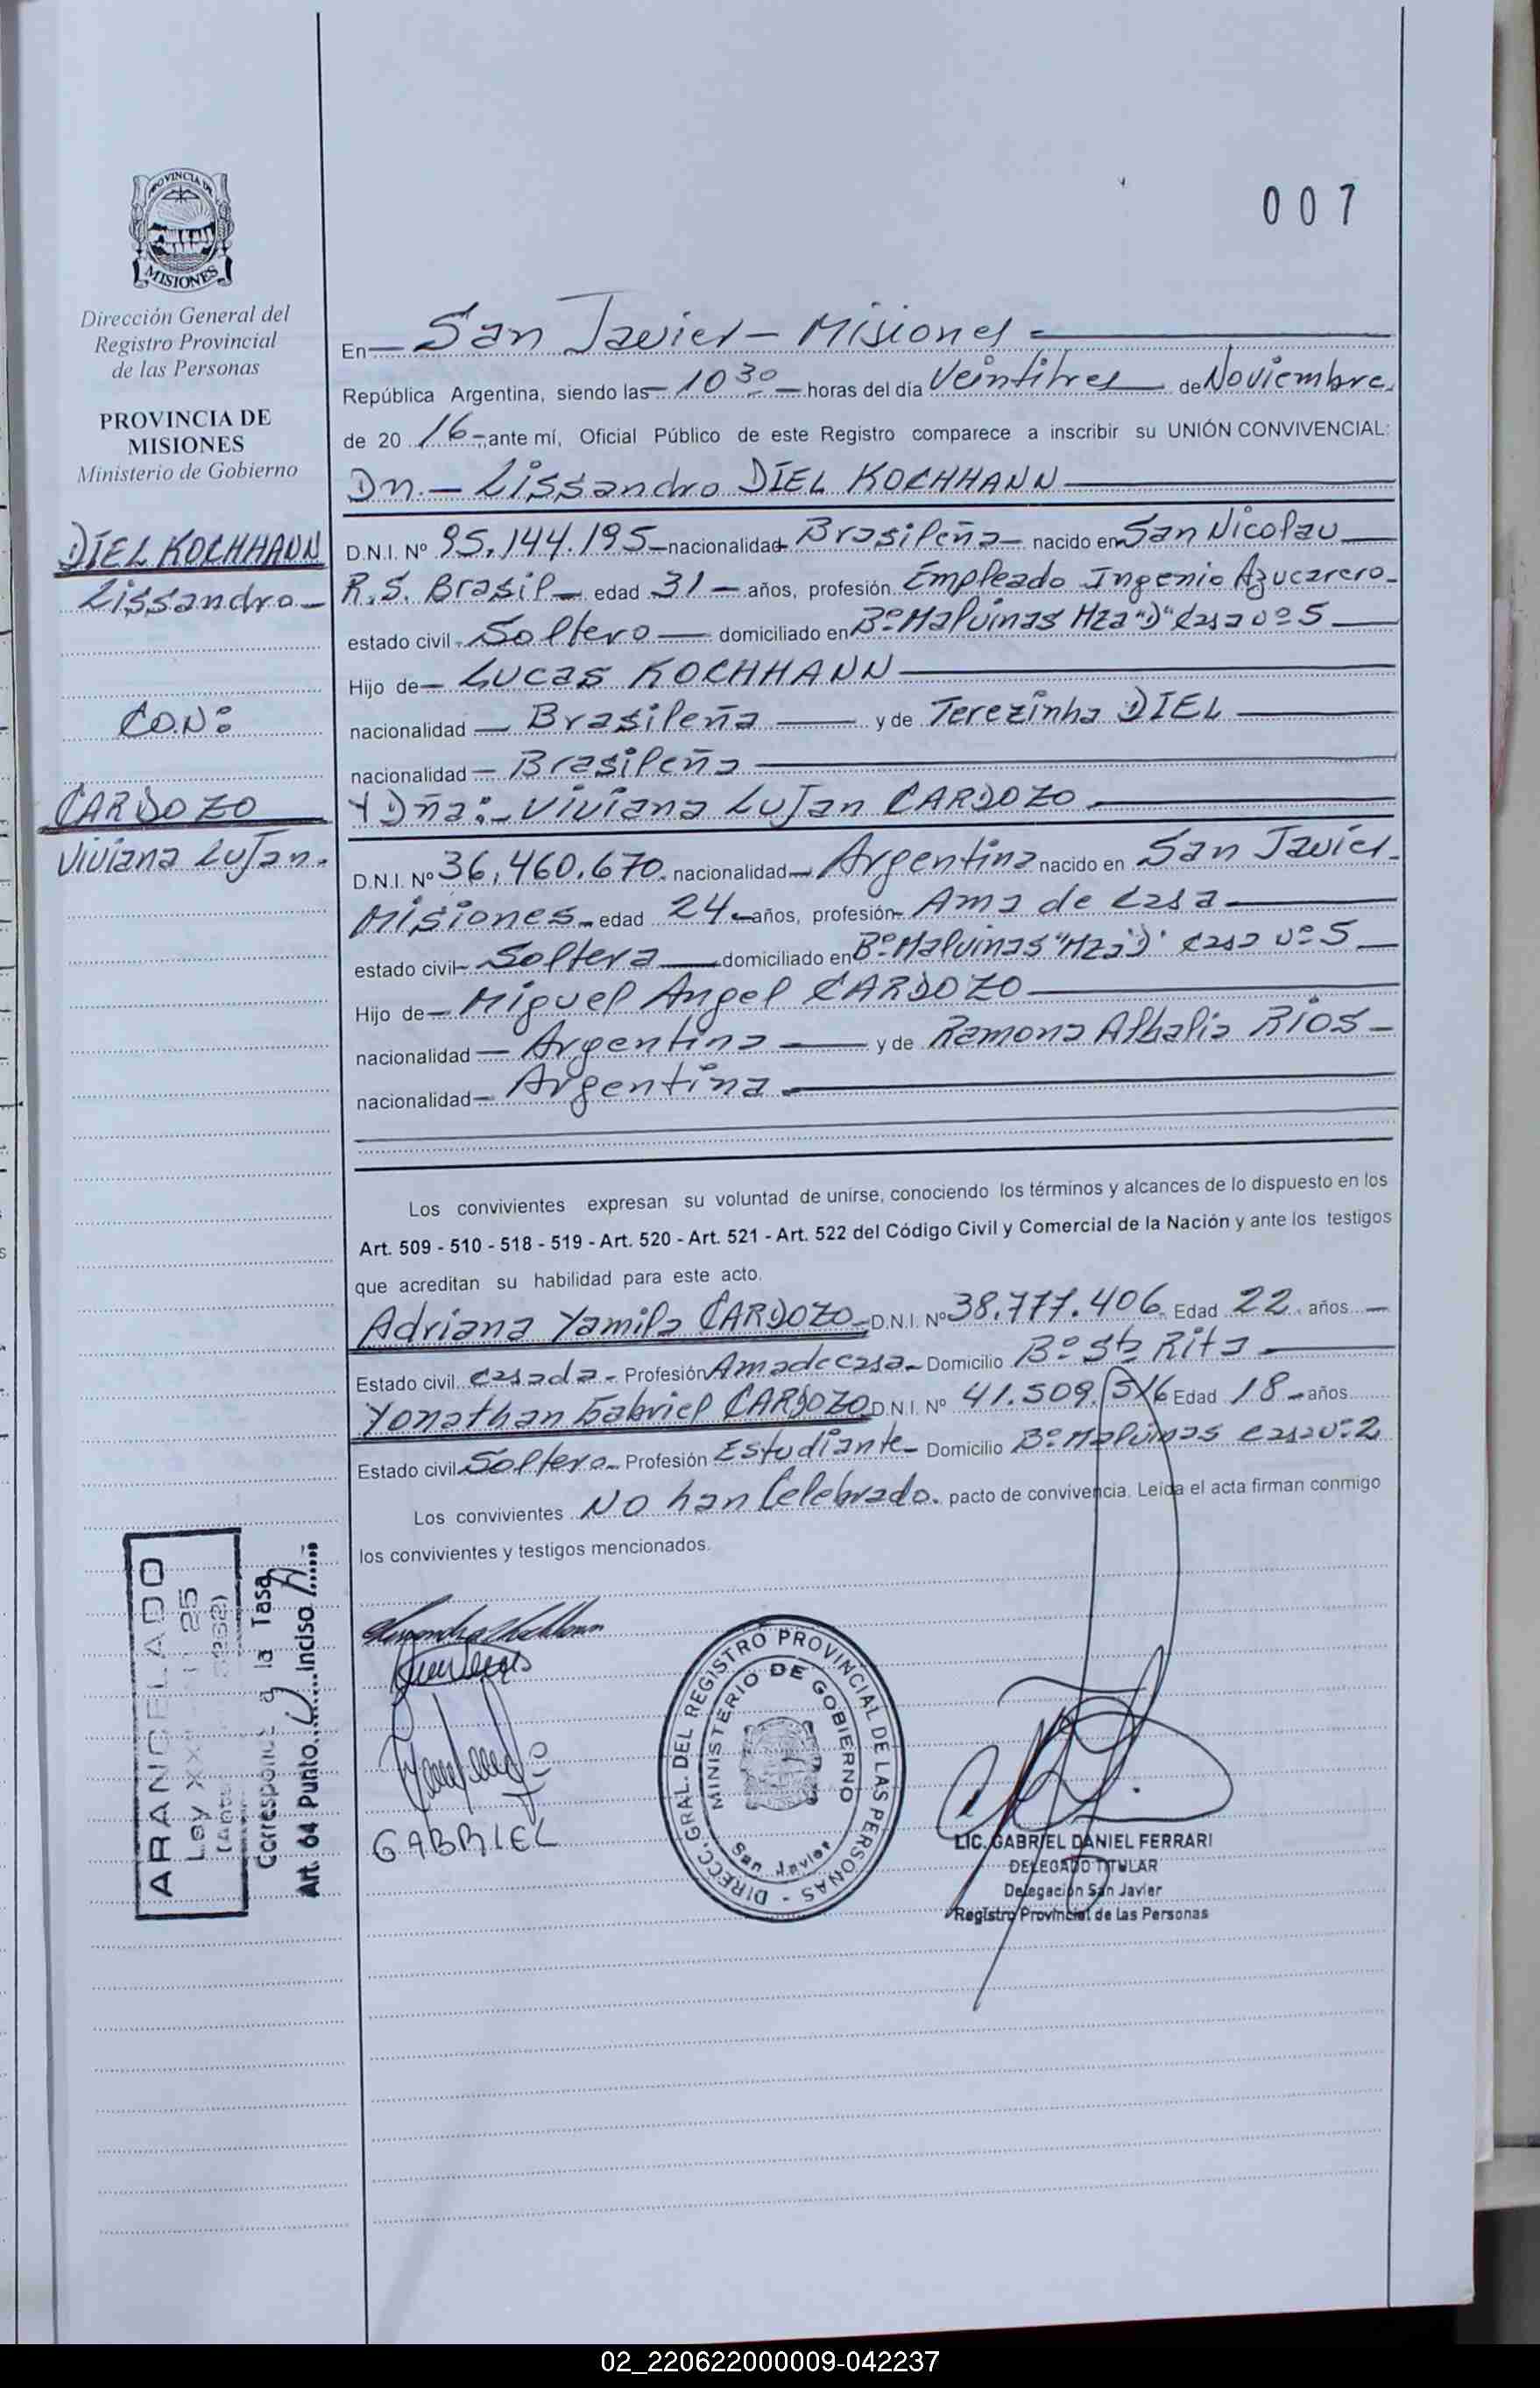 007
PROVINCIA DE
MISIONES
Dirección General del
Registro Provincial
de las Personas
PROVINCIA DE
MISIONES
Ministerio de Gobierno
DIEL KOCHHANN
Lissandro
CON:
CARDOZO
Viviana LuJan.
En San Javier - Misiones
República Argentina, siendo las 10 30 horas del día Veintitres de Noviembre
de 20 16 ante mí, Oficial Público de este Registro comparece a inscribir su UNIÓN CONVIVENCIAL:
Dn. Lissandro DIEL KOCHHANN
D.N.I. Nº 95.144.195 nacionalidad Brasileña nacido en San Nicolau
R.S. Brasil edad 31 años, profesión Empleado Ingenio Azucarero
estado civil Soltero domiciliado en Bº Malvinas Mza "D" Casa Nº 5
Hijo de Lucas KOCHHANN
nacionalidad Brasileña y de Terezinha DIEL
nacionalidad Brasileña
Y Dña: Viviana LuJan CARDOZO
D.N.I. Nº 36.460.670. nacionalidad Argentina nacido en San Javier
Misiones edad 24 años, profesión Ama de Casa
estado civil Soltera domiciliado en Bº Malvinas "Mza D" Casa Nº 5
Hijo de Miguel Angel CARDOZO
nacionalidad Argentina y de Ramona RIOS
nacionalidad Argentina
Los convivientes expresan su voluntad de unirse, conociendo los términos y alcances de lo dispuesto en los
Art. 509 - 510 - 518 - 519 - Art. 520 - Art. 521 - Art. 522 del Código Civil y Comercial de la Nación y ante los testigos
que acreditan su habilidad para este acto.
Adriana Yamila CARDOZO D.N.I. Nº 38.777.406 Edad 22 años
Estado civil Casada Profesión Ama de casa Domicilio Bº Sta Rita
Yonathan Gabriel CARDOZO D.N.I. Nº 41.509.516 Edad 18 años
Estado civil Soltero Profesión Estudiante Domicilio Bº Malvinas Casa Nº 2
Los convivientes NO han Celebrado. pacto de convivencia. Leída el acta firman conmigo
los convivientes y testigos mencionados.
GABRIEL
DIRECC. GRAL. DEL REGISTRO PROVINCIAL DE LAS PERSONAS
MINISTERIO DE GOBIERNO
San Javier
LIC. GABRIEL DANIEL FERRARI
DELEGADO TITULAR
Delegación San Javier
Registro Provincial de Las Personas
ARANCELADO
Ley
Corresponde a la Tasa
Art. 64 Punto Inciso A
02_220622000009-042237